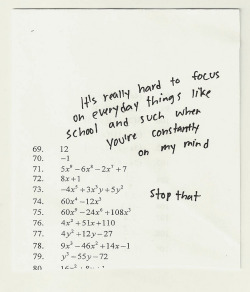 It's really hard to focus
on everyday things like
school and such when
you're constantly
on my mind
stop that
69. 12
70. −1
71. 5x⁸ − 6x⁶ − 2x³ + 7
72. 8x + 1
73. −4x³ + 3x²y + 5y²
74. 60x⁴ − 12x³
75. 60x⁹ − 24x⁶ + 108x³
76. 4x² + 51x + 110
77. 4y² + 12y − 27
78. 9x³ − 46x² + 14x − 1
79. y³ − 55y − 72
80.